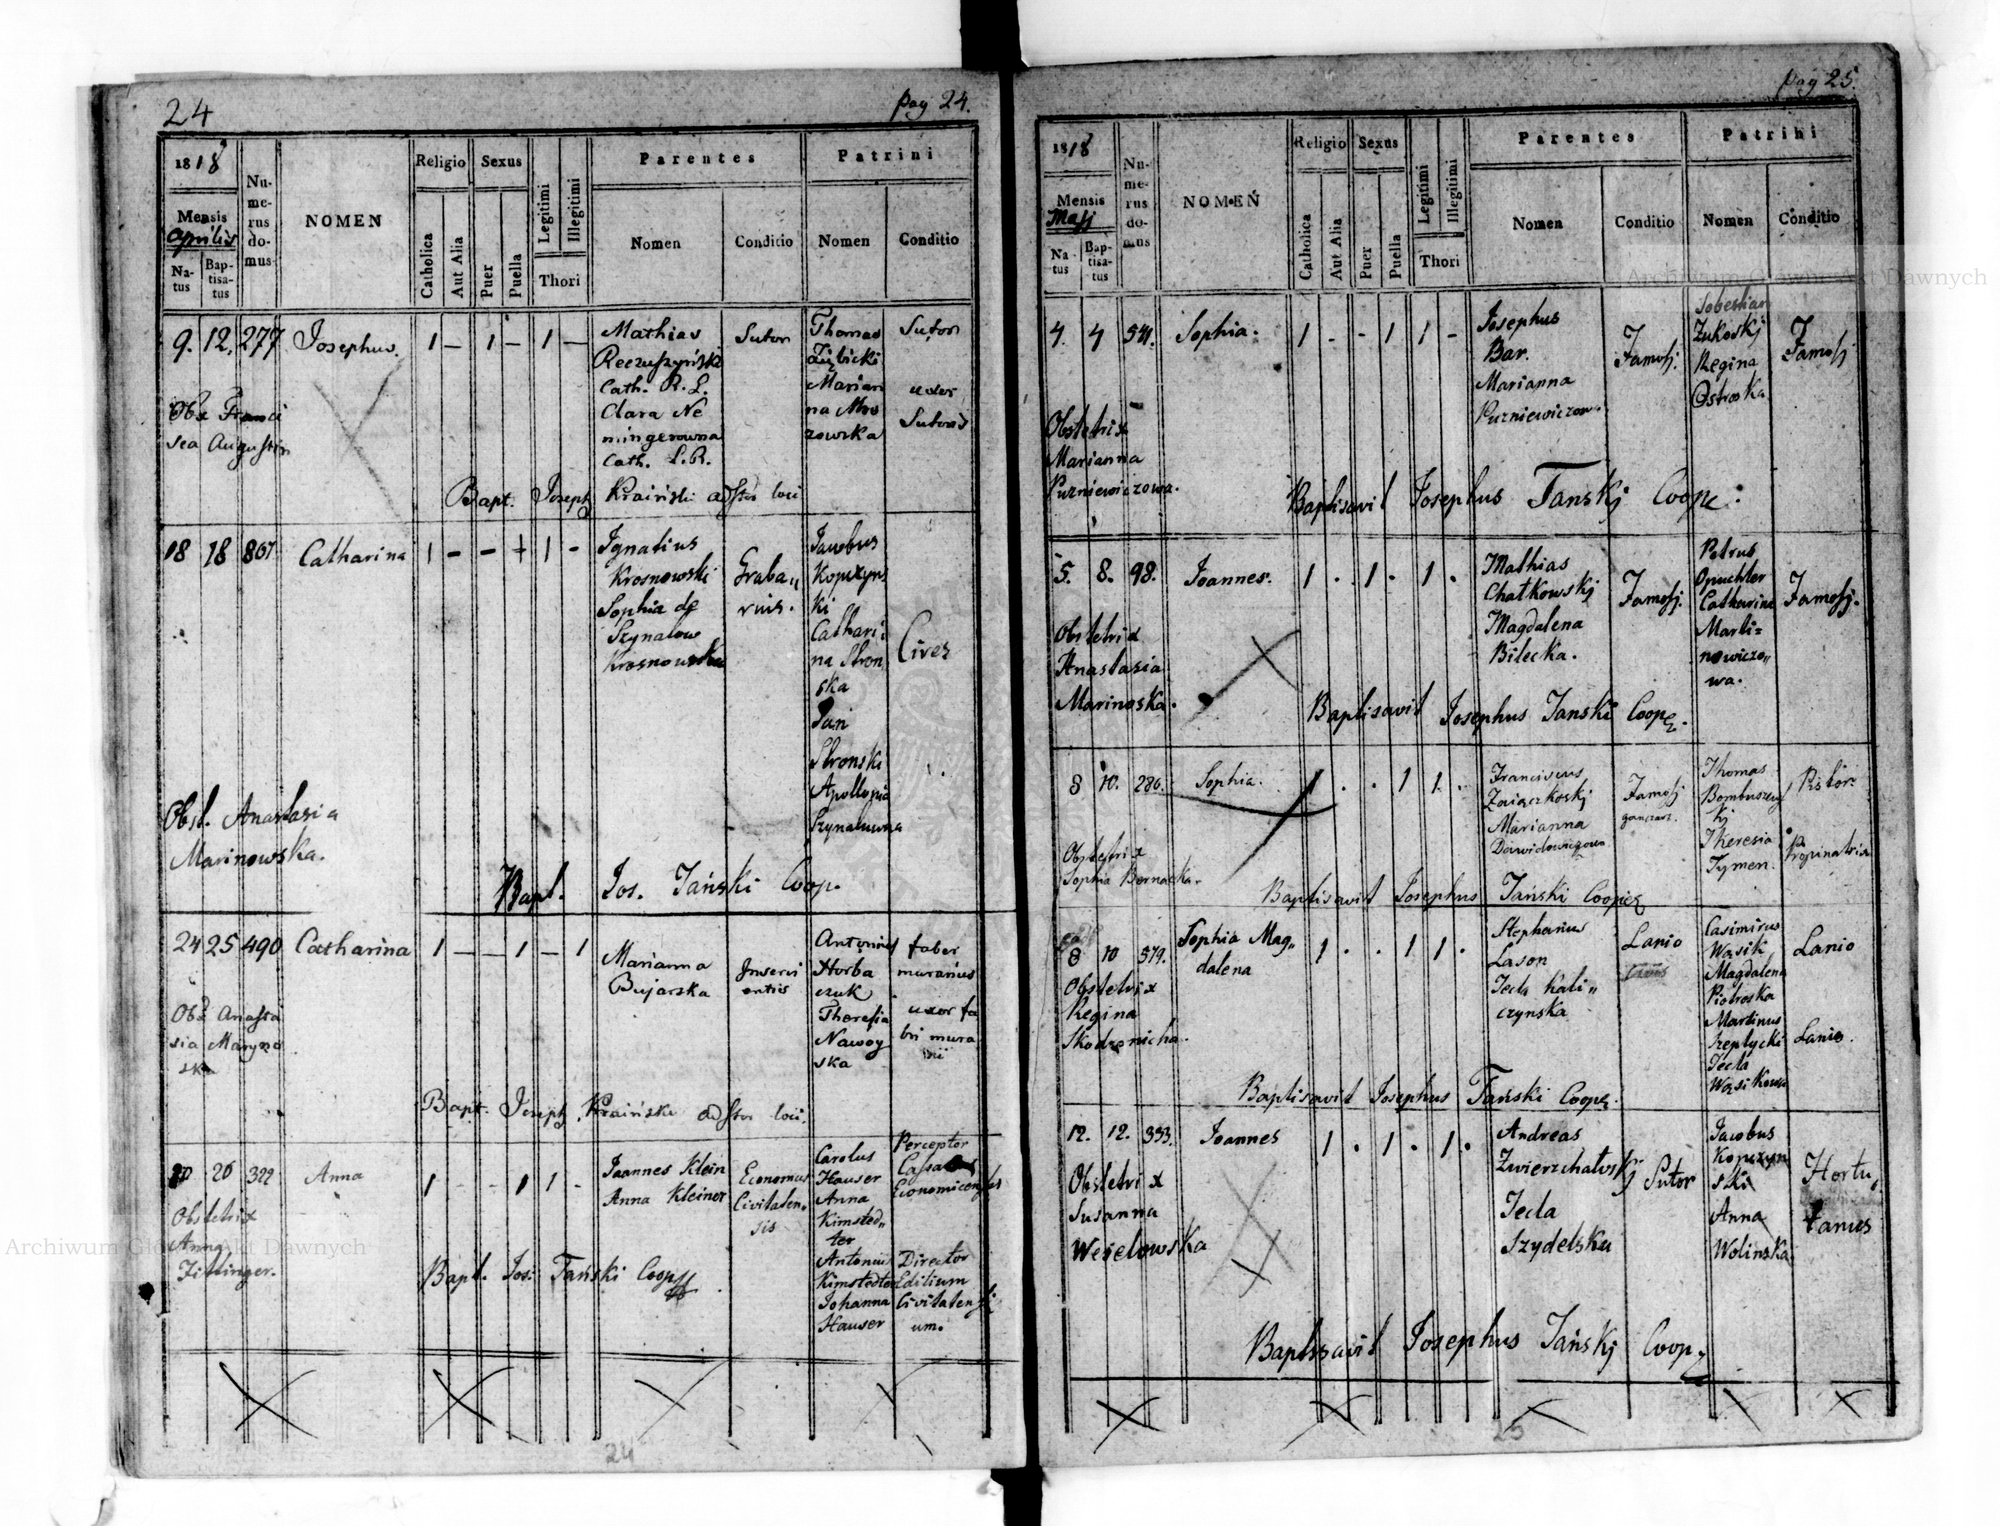 24
pag 24.
1818
Mensis
Aprilis
Natus
Baptisatus
Numerus domus
NOMEN
Religio
Catholica
Aut Alia
Sexus
Puer
Puella
Legitimi
Illegitimi
Thori
Parentes
Nomen
Conditio
Patrini
Nomen
Conditio
9. 12. 277 Josephus. 1 – 1 – 1 –
Mathias
Cath. R. L.
Clara Ne
mingerowna
Cath. L. R.
Sutor
Thomas
Marian
na Mro
zowska
Sutor
uxor
Sutoris
Obx Franci
sca Augustin
Bapt. Joseph Kraiński adstor loci
18 18 867 Catharina 1 – – + 1 –
Ignatius
Krosnowski
Sophia de
Szynalow
Krosnowska
Graba„
rius.
Jacobus
Kopczyns
ki
Cathari:
na Stron
ska
Jan
Stronski
Apollonia
Szynaluwna
Cives
Obst. Anastasia
Marinowska.
Bapt. Jos. Tański Coop.
24 25 490 Catharina 1 – – 1 – 1
Marianna
Bujarska
Inservi
entis
Antonius
Horba
czuk
Theresia
Nawoy
ska
faber
murarius
uxor fa
bri mura
rii
Obx Anasta
sia Maryno
ska
Bapt. Joseph Kraiński adstor loci.
26 322 Anna 1 - - 1 1 -
Joannes Klein
Anna Kleiner
Economus
Civitaten„
sis
Carolus
Hauser
Anna
Kimsted„
ter
Antonii
Kimstedter
Johanna
Hauser
Perceptor
Cassa
Economicensis
Director
Edilium
Civitatensi
um.
Obstetrix
Anna
Zittinger.
Bapt. Jos: Tański Coop
24
pag 25.
1818
Mensis
Maji
Natus
Baptisatus
Numerus domus
NOMEN
Religio
Catholica
Aut Alia
Sexus
Puer
Puella
Legitimi
Illegitimi
Thori
Parentes
Nomen
Conditio
Patrini
Nomen
Conditio
4. 4 541. Sophia. 1 - - 1 1 -
Josephus
Bar.
Marianna
Puzniewiczow.
Famosj.
Sobestian
Zukoskj
Regina
Ostroska
Famosj
Obstetrix
Marianna
Puzniewiczowa.
Baptisavit Josephus Tanskj Coope:
5. 8. 98. Joannes. 1 . 1 . 1 .
Mathias
Chatkowskj
Magdalena
Bilecka.
Famosj.
Petrus
Opuchter
Catharina
Marti=
nowiczo„
wa.
Famosj.
Obstetrix
Anastasia
Marinoska.
Baptisavit Josephus Tanski Coope.
8 10. 286. Sophia. 1 . . 1 1 .
Franciscus
Zaiączkoskj
Marianna
Dawidowiczowa
Famosj
ganczarz.
Thomas
kj
Theresia
Tymen.
Pistor
Propinatrix
Obstetrix
Sophia Bernacka.
Baptisavit Josephus Tański Coope
8 10 379. Sophia Mag„
dalena
1 . . 1 1 .
Stephanus
Lason
Tecla Kali„
czynska
Lanio
Casimirus
Wasik
Magdalena
Piotroska
Martinus
Szeptycki
Tecla
Wasikowa
Lanio
Lanio.
Obstetrix
Regina
Skodzenicha.
Baptisavit Josephus Tański Coope.
12. 12. 353. Joannes 1 . 1 . 1 .
Andreas
Zwierzchatwskj
Tecla
Szydelska
Sutor
Jacobus
Kopczyn
ski
Anna
Wolinska
Hortu„
lanus
Obstetrix
Susanna
Weselowska
Baptisavit Josephus Tańskj Coop.
25
Archiwum Główne Akt Dawnych
Archiwum Główne Akt Dawnych